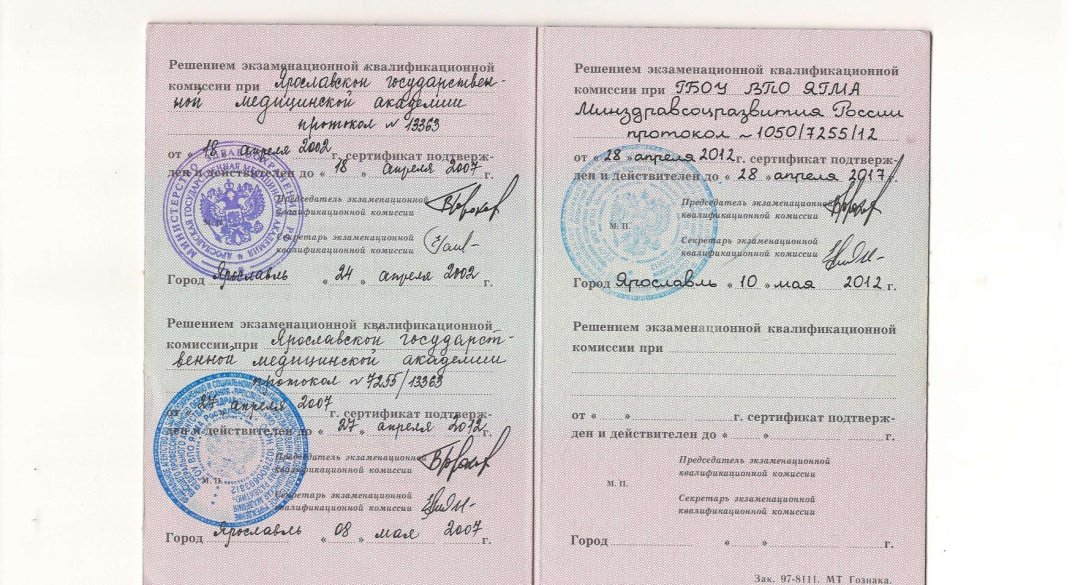 Решением экзаменационной квалификационной
комиссии при Ярославской государствен-
ной медицинской академии
протокол № 13363
от « 18 апреля 2002 г. сертификат подтверж-
ден и действителен до « 18 » апреля 2007 г.
Председатель экзаменационной
квалификационной комиссии
М. П.
Секретарь экзаменационной
квалификационной комиссии
Город Ярославль « 24 » апреля 2002 г.
Решением экзаменационной квалификационной
комиссии при Ярославской государст-
венной медицинской академии
протокол № 7255/13363
от « 27 апреля 2007 г. сертификат подтверж-
ден и действителен до « 27 » апреля 2012 г.
Председатель экзаменационной
квалификационной комиссии
М. П.
Секретарь экзаменационной
квалификационной комиссии
Город Ярославль « 08 » мая 2007 г.
Решением экзаменационной квалификационной
комиссии при ГБОУ ВПО ЯГМА
Минздравсоцразвития России
протокол ~ 1050/7255/12
от « 28 » апреля 2012 г. сертификат подтверж-
ден и действителен до « 28 » апреля 2017 г.
Председатель экзаменационной
квалификационной комиссии
М. П.
Секретарь экзаменационной
квалификационной комиссии
Город Ярославль « 10 » мая 2012 г.
Решением экзаменационной квалификационной
комиссии при
от « » г. сертификат подтверж-
ден и действителен до « » г.
Председатель экзаменационной
квалификационной комиссии
М. П.
Секретарь экзаменационной
квалификационной комиссии
Город « » г.
Зак. 97-8111. МТ Гознака.